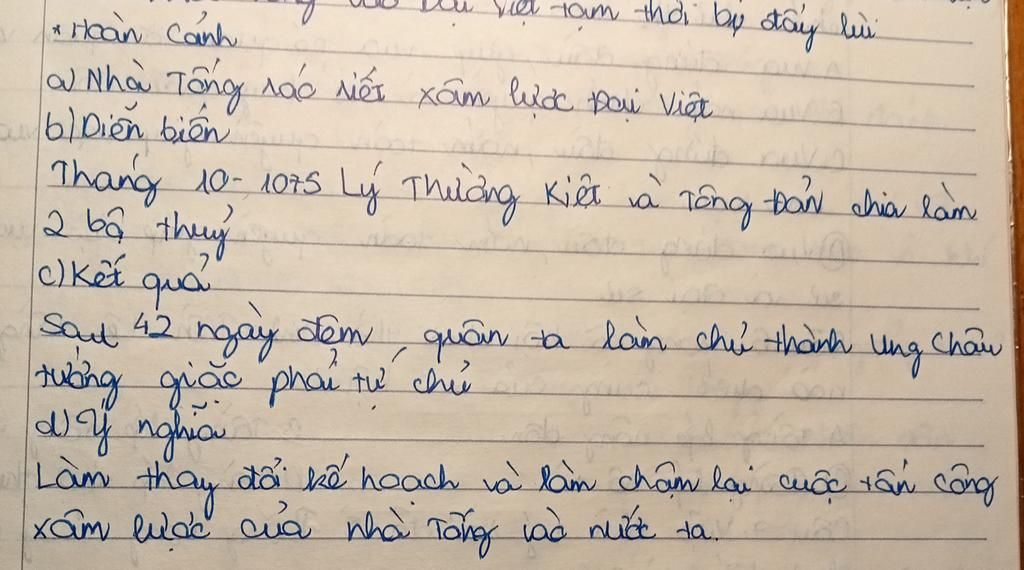 Đại Việt tạm thời bị đẩy lùi
* Hoàn Cảnh
a) Nhà Tống ráo riết xâm lược Đại Việt
b) Diễn biến
Tháng 10-1075 Lý Thường Kiệt và Tông Đản chia làm
2 bộ thuỷ
c) Kết quả
Sau 42 ngày đêm, quân ta làm chủ thành Ung Châu
tướng giặc phải tử chủ
d) Ý nghĩa
Làm thay đổi kế hoạch và làm chậm lại cuộc tấn công
xâm lược của nhà Tống vào nước ta.